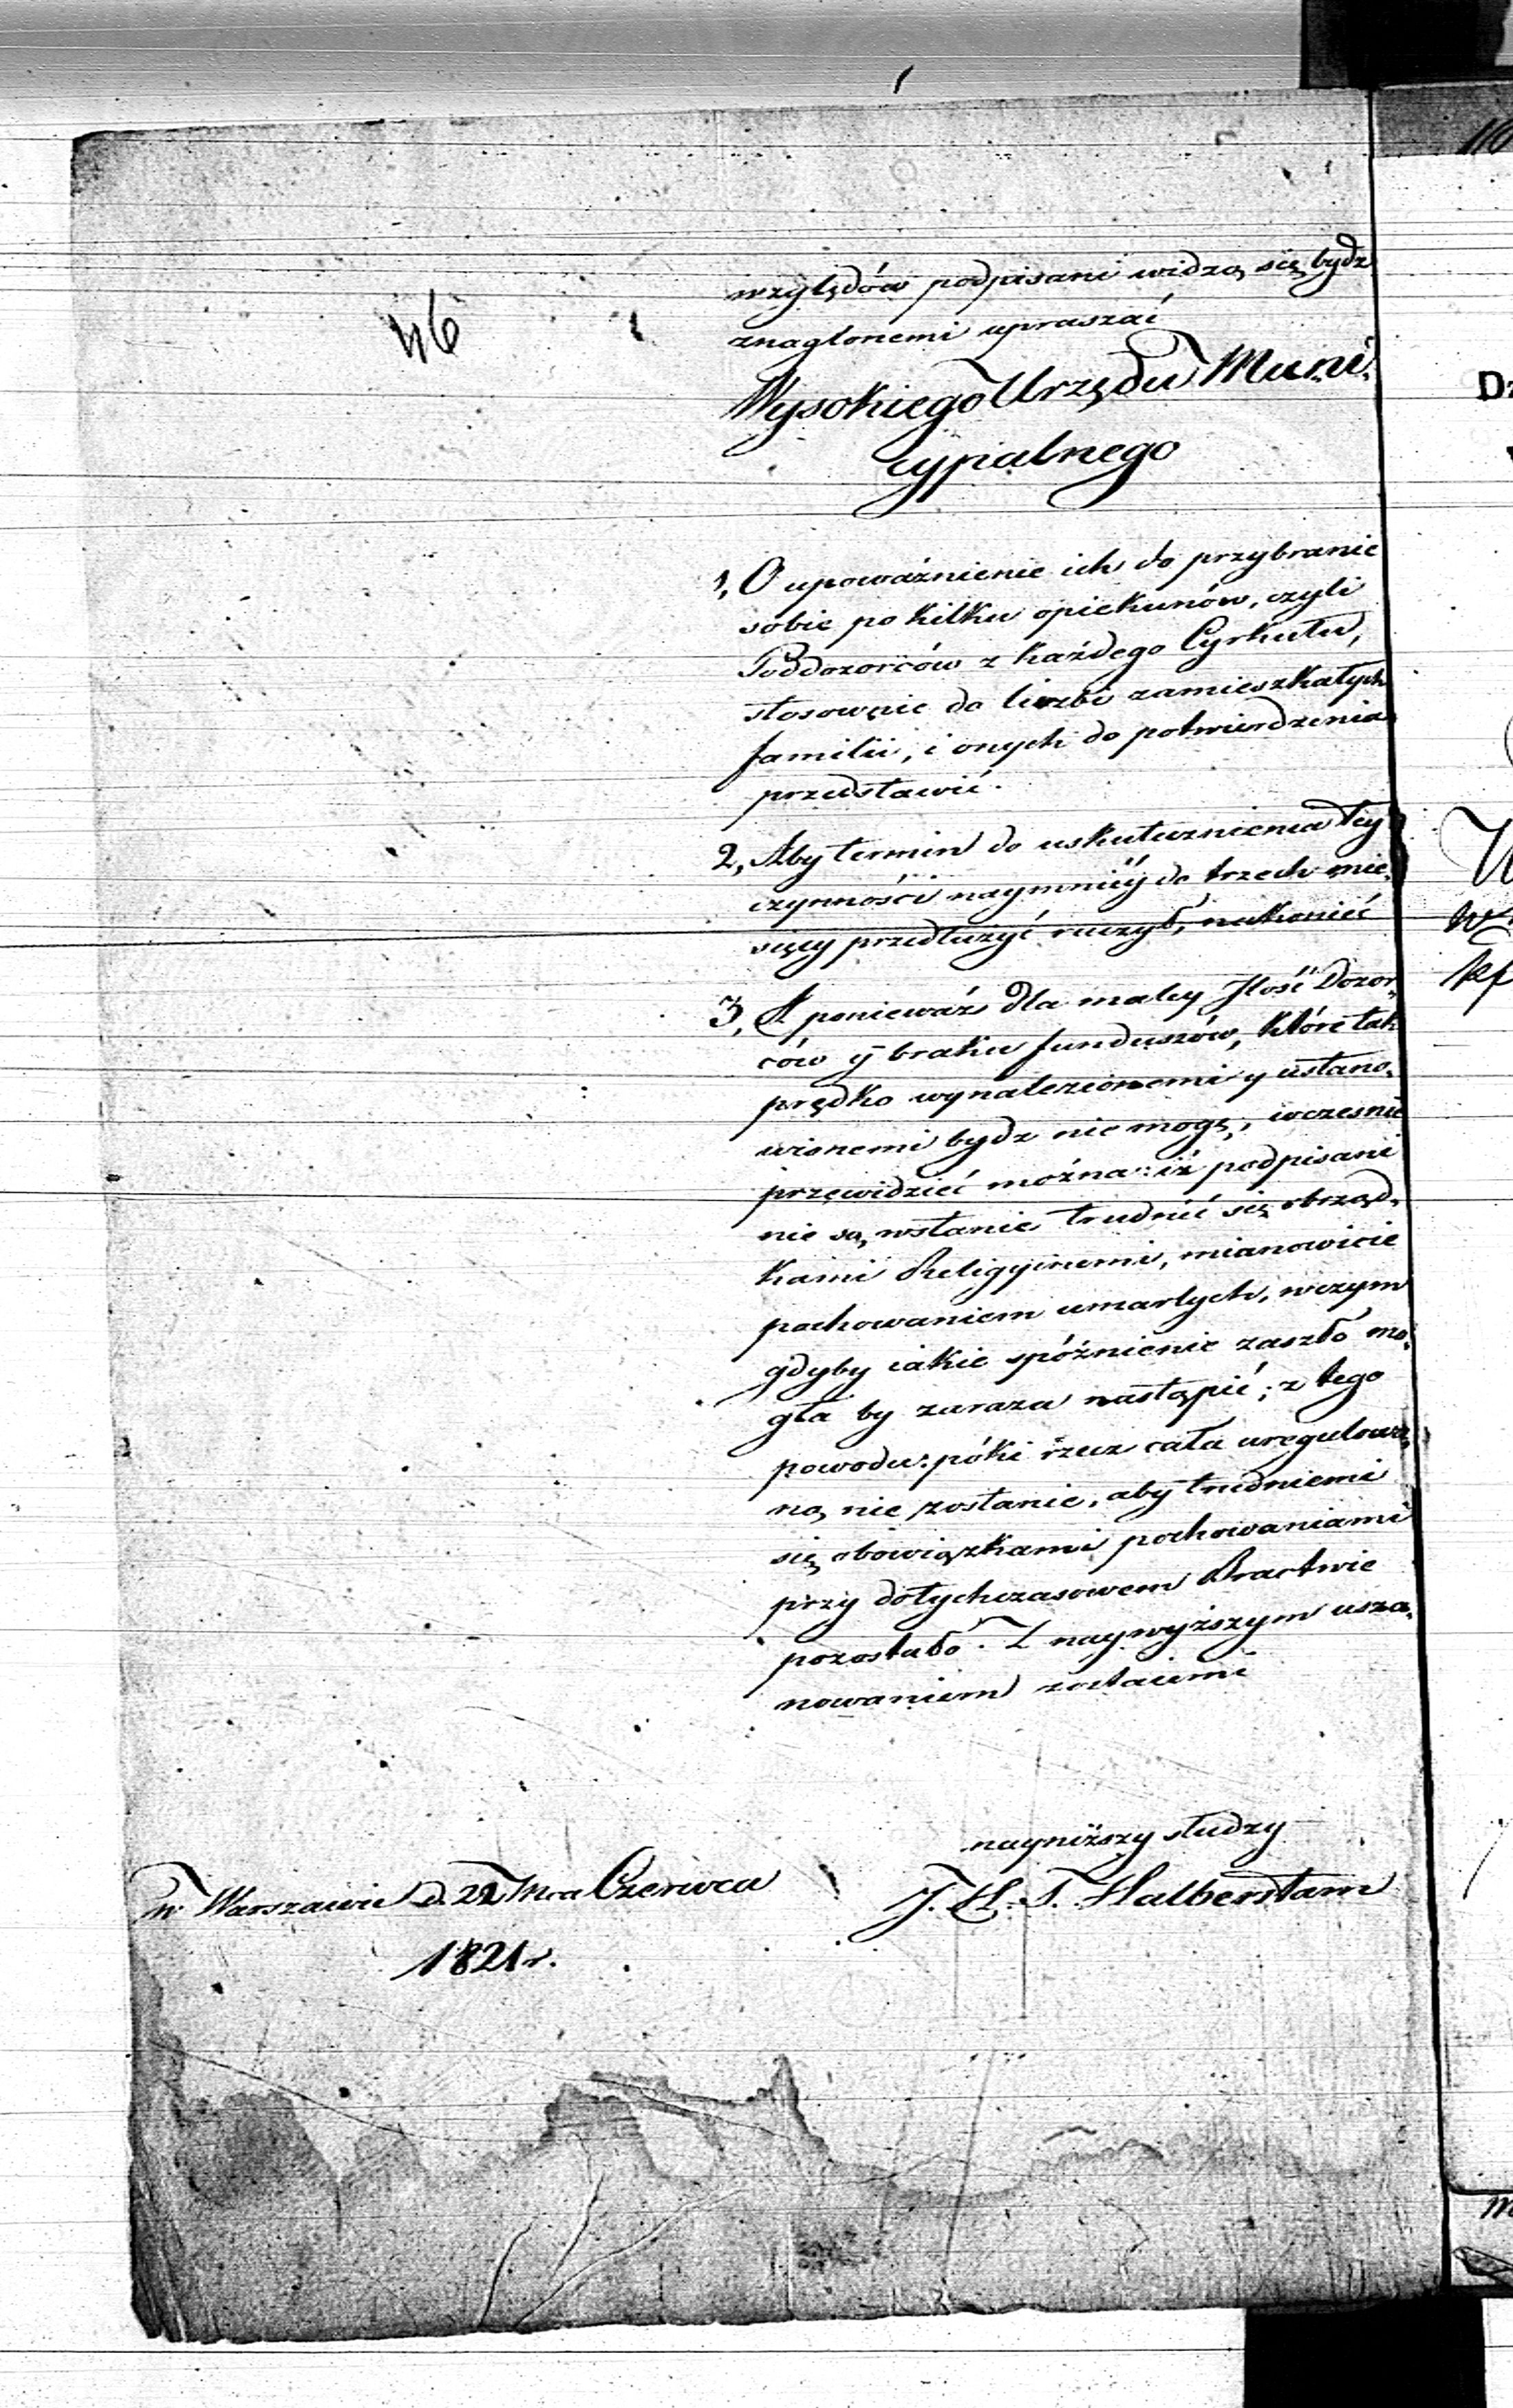 46
względów podpisani widzą się bydź
znaglonemi upraszać
Wysokiego Urzędu Muni
cypialnego
1, O upoważnienie ich do przybranie
sobie po kilku opiekunów, czyli
Poddozorców z każdego Cyrkułu,
stosownie do liczbi zamieszkałych
familii, i onych do potwierdzenia
przedstawić.
2, Aby termin do uskutecznienia tey
czynności naymniéy do trzech mie,
sięcy przedłużyć raczył, nakoniéc
3, A ponieważ dla małey Ilość Dozor,
ców y braku funduszów, które tak
prędko wynalezionemi y ustano,
wionemi bydz nie mogę, wczesnie
przewidzieć można: iż podpisani
nie są wstanie trudnić się obrząd,
kami Religyinemi, mianowicie
pochowaniem umarłych, wczym
gdyby iakie spóźnienie zaszło mo,
gła by zaraza nastąpić; z tego
powodu: póki rzecz cała uregulowa,
ną nie zostanie, aby trudniemi
się obowiązkami pochowaniami
przy dotychczasowem Bractwie
pozostało. Z naywyższym usza,
nowaniem zostaiemi
nayniższy słudzy
w Warszawie d. 22 Mca Czerwca
J. H. S. Halberstam
1821 r.